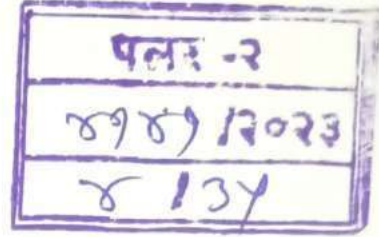 पलर -२
४१४१ /२०२३
४ / ३५